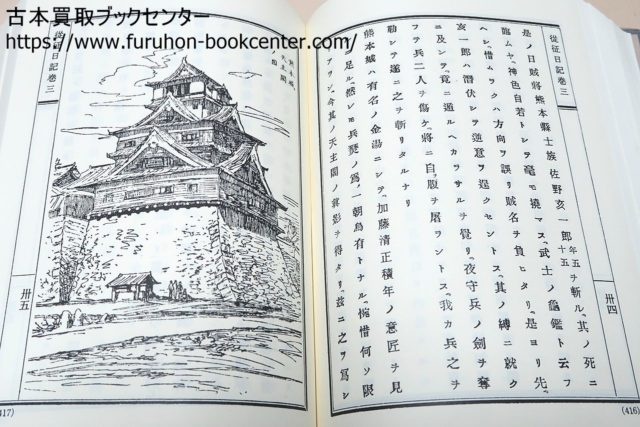 古本買取ブックセンター
https://www.furuhon-bookcenter.com/
從征日記卷三
是ノ日賊將熊本縣士族佐野亥一郎年五十五ヲ斬ル、其ノ死ニ
臨ムヤ、神色自若トシテ毫モ撓マス、武士ノ龜鑑ト云フ
ヘシ、惜ムラクハ方向ヲ誤リ賊名ヲ負ヒタリ、是ヨリ先、
亥一郎ハ潛伏シテ逆意ヲ逞クセントス、其ノ縛ニ就ク
ニ及ンテ、竟ニ遁ルヘカラサルヲ覺リ、夜守兵ノ劍ヲ奪
フテ兵二人ヲ傷ケ、將ニ自ラ腹ヲ屠ラントス、我カ兵之ヲ
勒シテ遂ニ之ヲ斬リタルナリ
熊本城ハ有名ノ金湯ニシテ、加藤清正積年ノ意匠ヲ見
ルニ足ル、然レモ兵燹ノ爲、一朝烏有トナル、惋惜何ソ限
アラン、今其ノ天主閣ノ眞影ヲ得タリ、玆ニ之ヲ寫シ
卅四
(416)
從征日記卷三
熊本城
天主閣
圖
卅五
(417)